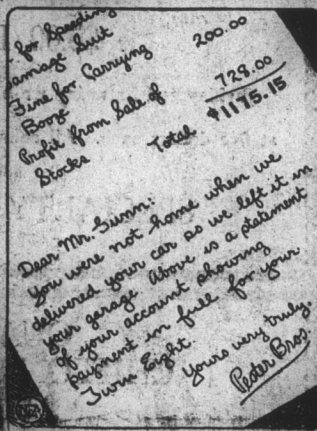 - for Speeding
Damage Suit
Fine for Carrying
Booze 200.00
Profit from Sale of
Stocks 728.00
Total $1175.15
Dear Mr. Gunn:
You were not home when we
delivered your car so we left it in
your garage. Above is a statement
of your account showing
payment in full for your
Twin Eight.
Yours very truly,
Peder Bros.
NEA